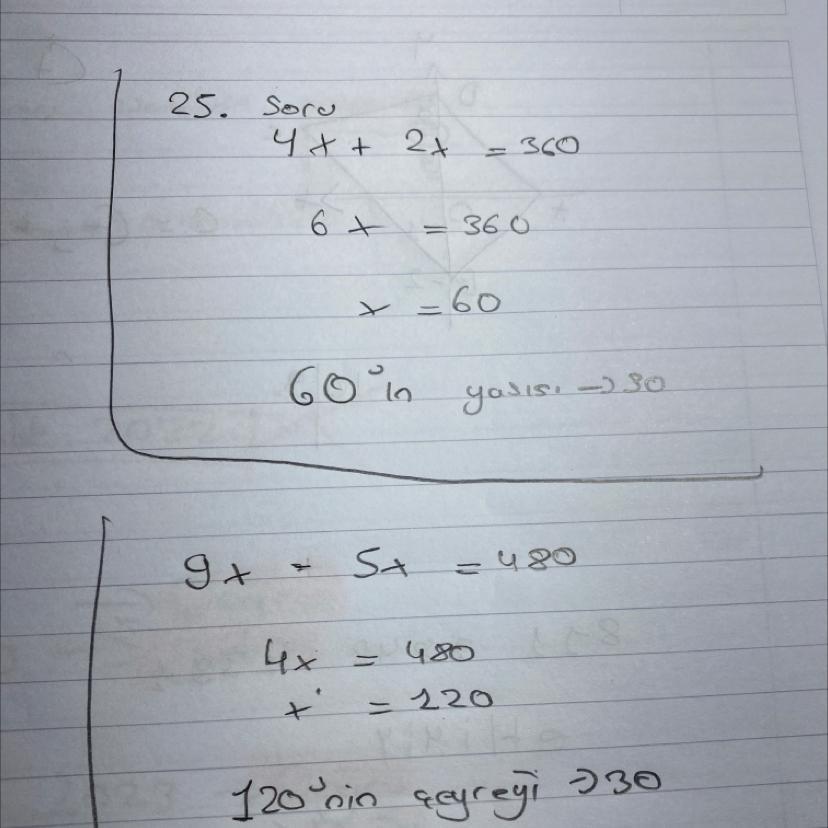 25. Soru
4x + 2x = 360
6x = 360
x = 60
60'ın yarısı → 30
9x - 5x = 480
4x = 480
x = 120
120'nin çeyreği → 30